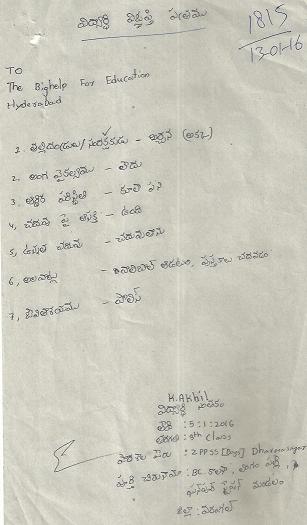 విద్యార్థి విజ్ఞప్తి పత్రము
1815
13-01-16
TO
The Bighelp For Education
Hyderabad
1. తల్లిదండ్రులు/సంరక్షకుడు - అర్చన (అక్క)
2. అంగ వైకల్యము - లేదు
3. ఆర్థిక పరిస్థితి - కూలి పని
4, చదువు పై ఆసక్తి - ఉంది
5, ఉన్నత చదువు - చదువుతాను
6, అలవాట్లు - వాలీబాల్ ఆడటం, పుస్తకాలు చదవడం
7, జీవితాశయము - పోలీస్
K.Akhil
విద్యార్థి సంతకం
తేది : 5:1:2016
తరగతి : 8th Class
పాఠశాల పేరు : ZPPSS [Boys]
పూర్తి చిరునామా : BC కాలనీ,
మండలం
జిల్లా : వరంగల్